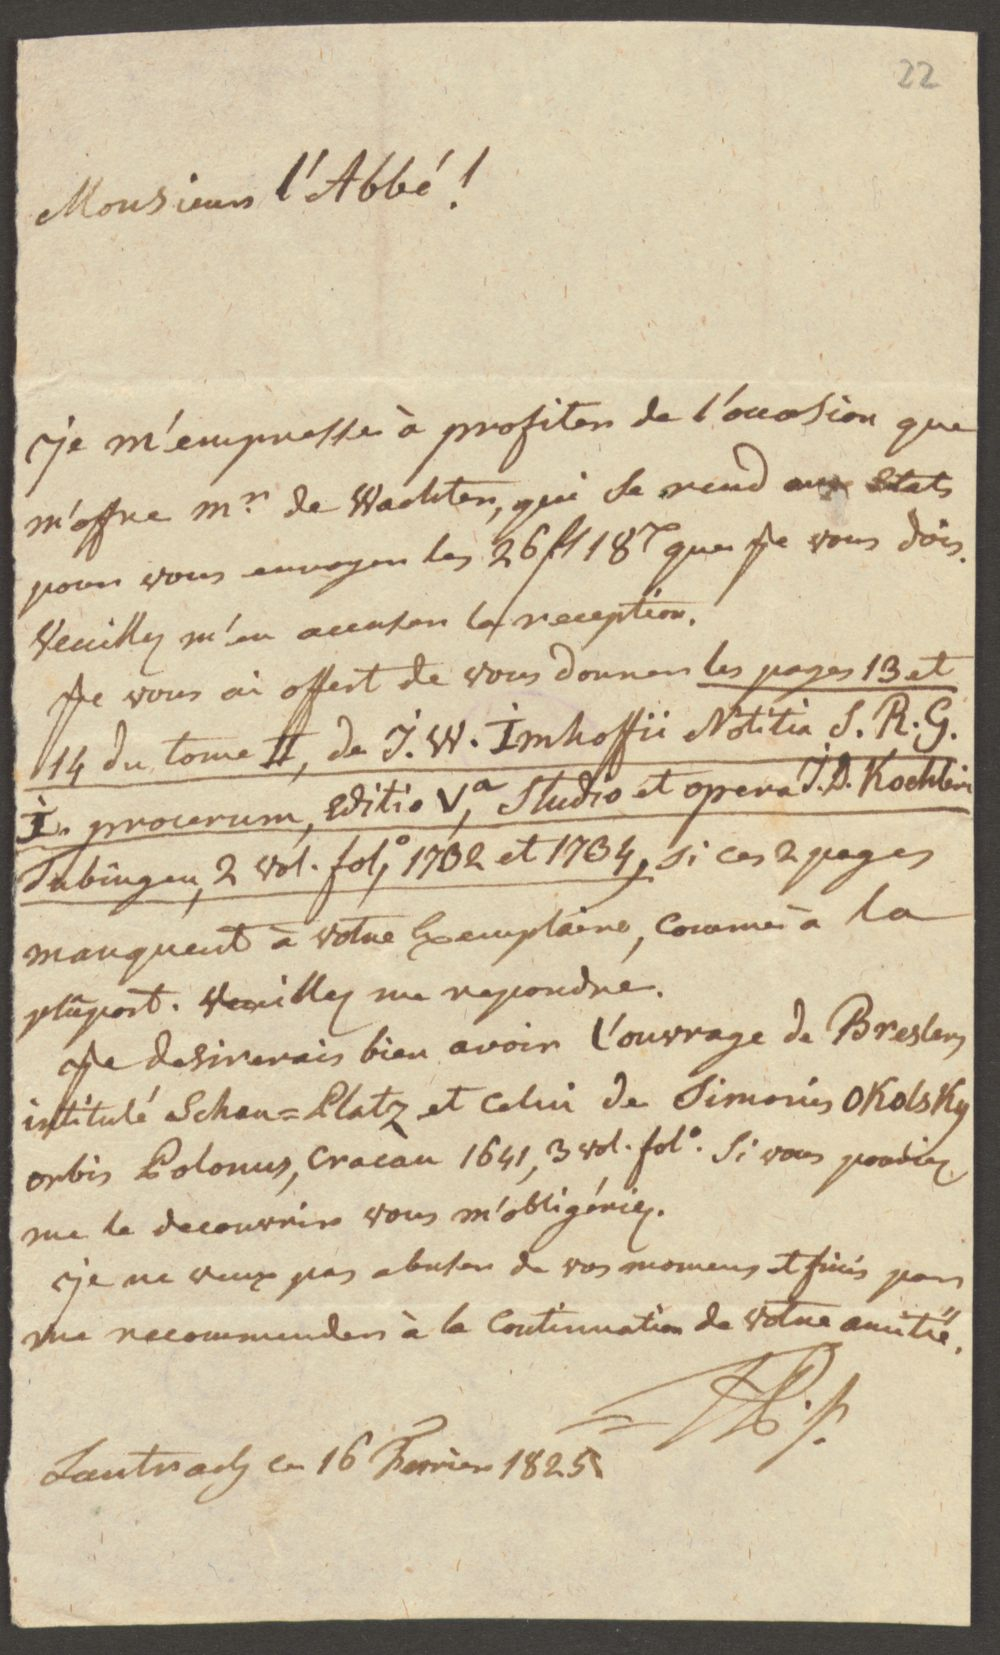 22
Monsieur l'Abbé!
Je m'empresse à profiter de l'occasion que
m'offre Mr. de Wachter, qui se rend aux Etats
pour vous envoyer les 26 fl 18 que je vous dois.
Veuillez m'en accuser la reception.
Je vous ai offert de vous donner les pages 13 et
14 du tome II, de J. W. Imhoffii Notitia S. R. G.
I. procerum, editio Va, Studio et opera J. D. Koehleri
Tubingen, 2 vol. fol.o 1732 et 1734, si ces 2 pages
manquent à votre Exemplaire, comme à la
plûpart. Veuillez me repondre.
Je desirerais bien avoir l'ouvrage de Breslers
intitulé Schau=Platz et celui de Simonis Okolsky
orbis Polonus, Cracau 1641, 3 vol. fol.o Si vous pouviez
me le decouvrir vous m'obligériez.
Je ne veux pas abuser de vos momens et finis par
me recommender à la Continuation de votre amitié.
Lautrach ce 16 Fevrier 1825